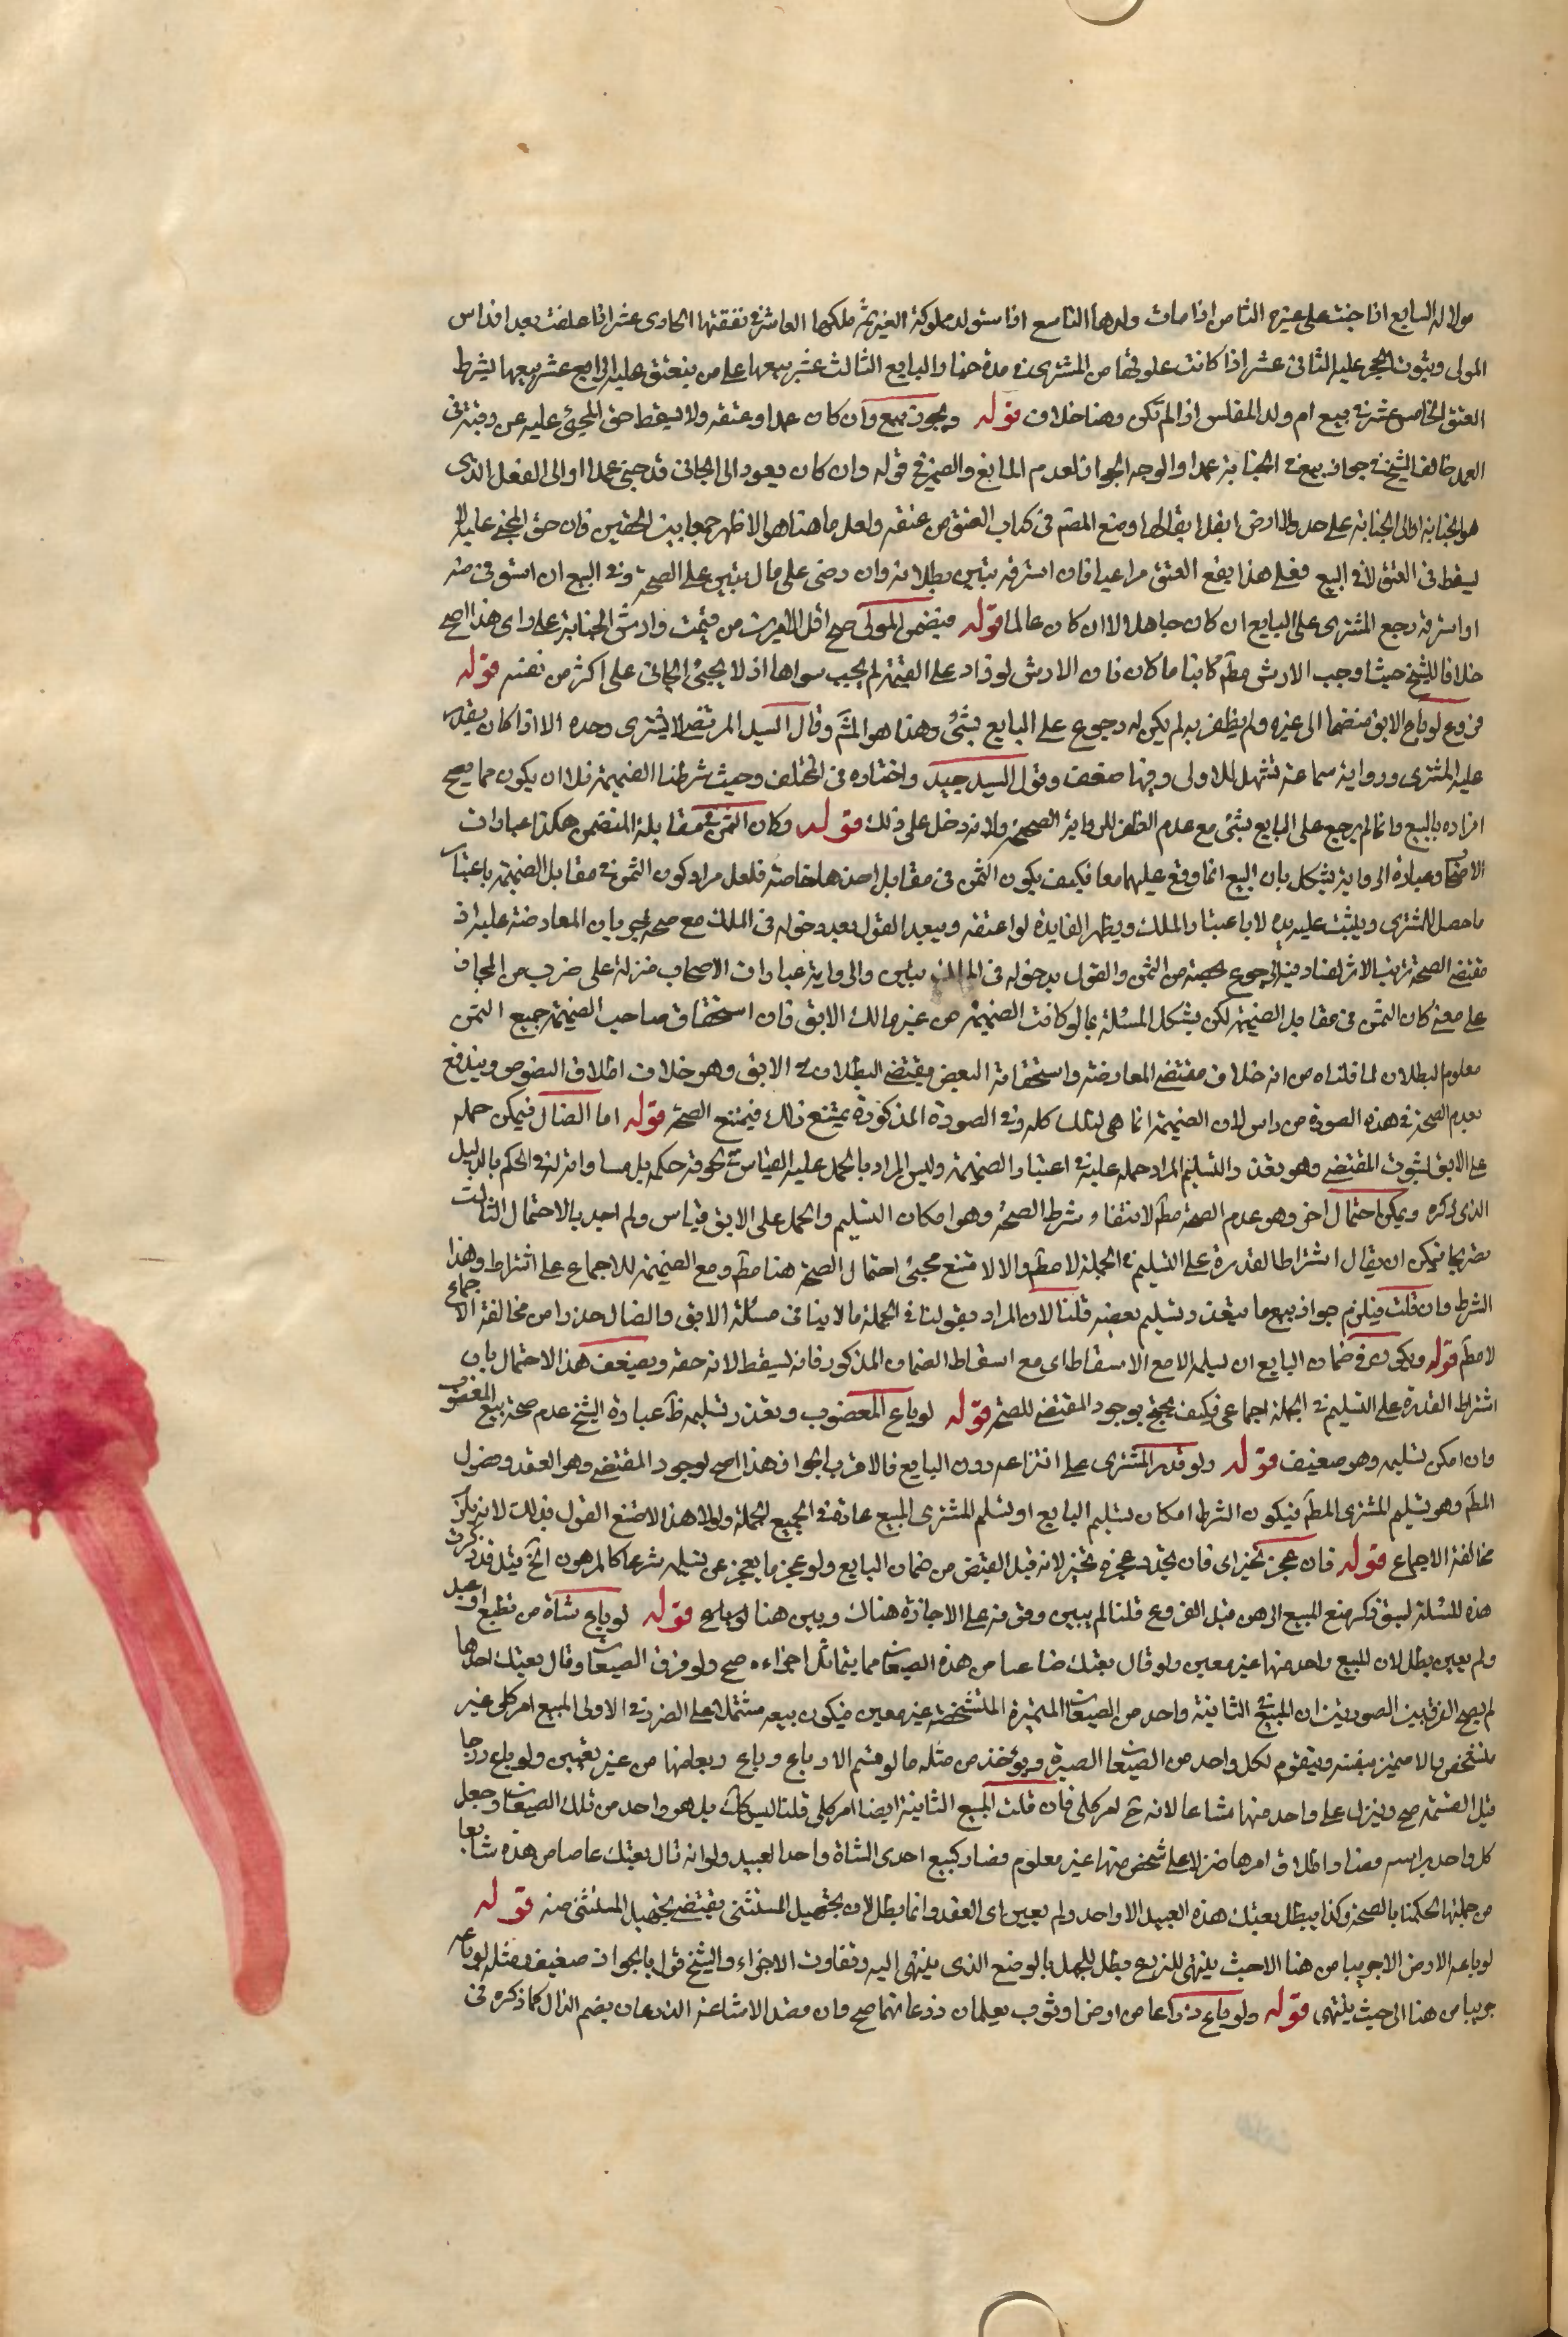 مولاه السابع اذا جنت على غيره الثامن اذا مات ولدها التاسع اذا استولد مملوكة الغير ثم ملكها العاشر في نفقتها الحادى عشر اذا علقت بعد افلاس
المولى وثبوت الحجر عليه الثانى عشر اذا كانت علوقها من المشترى في مدة خيار البايع الثالث عشر بيعها على من ينعتق عليه الرابع عشر بيعها بشرط
العتق الخامس عشر في بيع ام ولد المفلس اذا لم تكن وهنا خلاف قوله ويجوز بيع وان كان عمدا وعتقه ولا يسقط حق المجنى عليه عن رقبته فى
العمد خالف الشيخ في جواز بيعه في الجناية عمدا والوجه الجواز لعدم المانع والضمير في قوله وان كان يعود الى الجانى قد جنى عمدا او الى الفعل الذى
هو الجناية او الى الجناية على حد ولا ارض ابقل ابقالها ومنع المصم فى كتاب العتق من عتقه ولعل ما هنا هو الاظهر جمعا بين الحقين فان حق المجنى عليه لا
يسقط فى العتق لا في البيع فعلى هذا يقع العتق مراعيا فان استرقه تبين بطلانه وان رضى على مال تبين على الصحة وفي البيع ان استوفى منه
او استرقه رجع المشترى على البايع ان كان جاهلا لا ان كان عالما قوله فيضمن المولى صح اقل الامرين من قيمته وارش الجناية على راى هذا اصح
خلافا للشيخ حيث اوجب الارش مطم كائنا ما كان فان الارش لو زاد على القيمة لم يجب سواها اذ لا يجنى الجانى على اكثر من نفسه قوله
فروع لو باع الابق منضما الى غيره ولم يظفر به لم يكن له رجوع على البايع بشئ وهذا هو المشم وقال السيد المرتضى لا يشترى وحده الا اذا كان يقدر
عليه المشترى ورواية سماعة تشهد للاولى وفيها ضعف وقول السيد جيد واختاره فى المختلف وحيث شرطنا الضميمة فلا ان يكون مما يصح
افراده بالبيع وانما لم يرجع على البايع بشئ مع عدم الظفر للرواية الصحيحة ولانه دخل على ذلك قوله وكان الثمن في مقابلة المنضمن هكذا عبارات
الاصحاب وعبارة الرواية يشكل بان البيع انما وقع عليهما معا فكيف يكون الثمن فى مقابل احدهما خاصة فلعل مراد كون الثمن في مقابل الضميمة باعتبار
ما حصل للمشترى ويثبت عليه يده لا باعتبار الملك ويظهر الفايدة لو اعتقه ويبعد القول بعد دخوله فى الملك مع صحة جريان المعاوضة عليه اذ
مقتضى الصحة ترتب الاثر فيه الرجوع بحصته من الثمن والقول بدخوله فى الملك والرواية عبارات الاصحاب منزلة على ضرب من المجاز
على معنى كان الثمن فى مقابل الضميمة لكن يشكل المسئلة بما لو كانت الضميمة من غير مالك الابق فان استحقاق صاحب الضميمة جميع الثمن
معلوم البطلان لما قلناه من انه خلاف مقتضى المعاوضة واستحقاقه البعض يقتضى البطلان في الابق وهو خلاف اطلاق النصوص ويندفع
بعدم الصحة في هذه الصورة من راس لان الضميمة انما هى لتلك كله وفي الصورة المذكورة يمتنع ذلك فيمتنع الصحة قوله اما الضال فيمكن حمله
على الابق لثبوت المقتضى وهو تعذر التسليم المراد حمله عليه في اعتبار الضميمة وليس المراد بالحمل عليه القياس في لحوقه حكمه بل مساواته له في الحكم بالدليل
الذى ذكره ويمكن احتمال اخر وهو عدم الصحة مطم لانتفاء شرط الصحة وهو امكان التسليم والحمل على الابق قياس ولم اجد بالاحتمال الثالث
تصريحا فيمكن ان يقال اشتراط القدرة على التسليم في الجملة لا مطم والا لامتنع مجئ احتمال الصحة هنا مطم ومع الضميمة للاجماع على اشتراط وهذا
الشرط وان قلت فيلزم جواز بيع ما يتعذر تسليم بعضه قلنا لان المراد بقولنا في الجملة ما لا ينافى مسئلة الابق والضال حذرا من مخالفة الاجماع
لا مطم قوله ويكون في ضمان البايع ان يسلمه الا مع الاسقاط اى مع اسقاط الضمان المذكور فانه يسقط لانه حقه ويضعف هذا الاحتمال بان
اشتراط القدرة على التسليم في الجملة اجماعى فكيف يحتج بوجود المقتضى للصحة قوله لو باع المغصوب وتعذر تسليمه ظ عبارة الشيخ عدم صحة بيع المغصوب
وان امكن تسليمه وهو ضعيف قوله ولو قدر المشترى على انتزاعه دون البايع فالاقرب الجواز هذا اصح لوجود المقتضى وهو العقد وحصول
المطم وهو تسليم المشترى المطم فيكون الشرط امكان تسليم البايع او تسلم المشترى المبيع عادة في الجميع الجملة ولولا هذا لامتنع القول بذلك لانه يلزم
مخالفة الاجماع قوله فان عجز تخير اى فان تجدد عجزه تخير لانه قبل القبض من ضمان البايع ولو عجز ما يعجز عن تسليمه شرعا كالمرهون الخ قيل قد ذكرت
هذه المسئلة لسبق ذكر منع المبيع الرهن قبل الفروع قلنا لم يبين وقوفه على الاجازة هناك وبين هنا قوله لو باع شاة من قطيع او عبد
ولم يعين بطل لان المبيع واحد منها غير معين ولو قال بعتك صاعا من هذه الصيعان مما يتماثل اجزاءه صح ولو فرق الصيعان وقال بعتك احدها
لم يصح الفرق بين الصورتين ان المبيع في الثانية واحد من الصيعان المتميزة المتشخصة غير معين فيكون بيعه مشتملا على الغرر وفي الاولى المبيع امر كلى غير
متشخص ولا متميز بنفسه ويتقوم لكل واحد من الصيعان الصبرة ويؤخذ من مثله ما لو قسم الارباع وباع ربعا منها من غير تعيين ولو باع ربعا
قبل القسمة صح وينزل على واحد منها مشاعا لانه ح امر كلى فان قلت المبيع الثانية ايضا امر كلى قلنا ليس كك بل هو واحد من تلك الصيعان وجعل
كل واحد براسه فصار اطلاق امرها منزلا على شخص منها غير معلوم فصار كبيع احدى الشاة واحد العبيد ولو انه قال بعتك صاعا من هذه شايعا
من جملتها لحكمنا بالصحة وكذا يبطل بعتك هذه العبيد الا واحد ولم يعين اى العقد وانما بطل لان تجهيل المستثنى يقتضى تجهيل المستثنى منه قوله
لو باعه الارض الا جريبا من هنا الا حيث ينتهى للذرع بطل للجهل بالوضع الذى ينتهى اليه وتفاوت الاجزاء وللشيخ قول بالجواز ضعيف ومثله لو باعه
جريبا من هنا الى حيث ينتهى قوله ولو باع ذراعا من ارض او ثوب يعلمان ذرعانهما صح فان قصد الاشاعة الذرعان بضم الذال كما ذكره فى